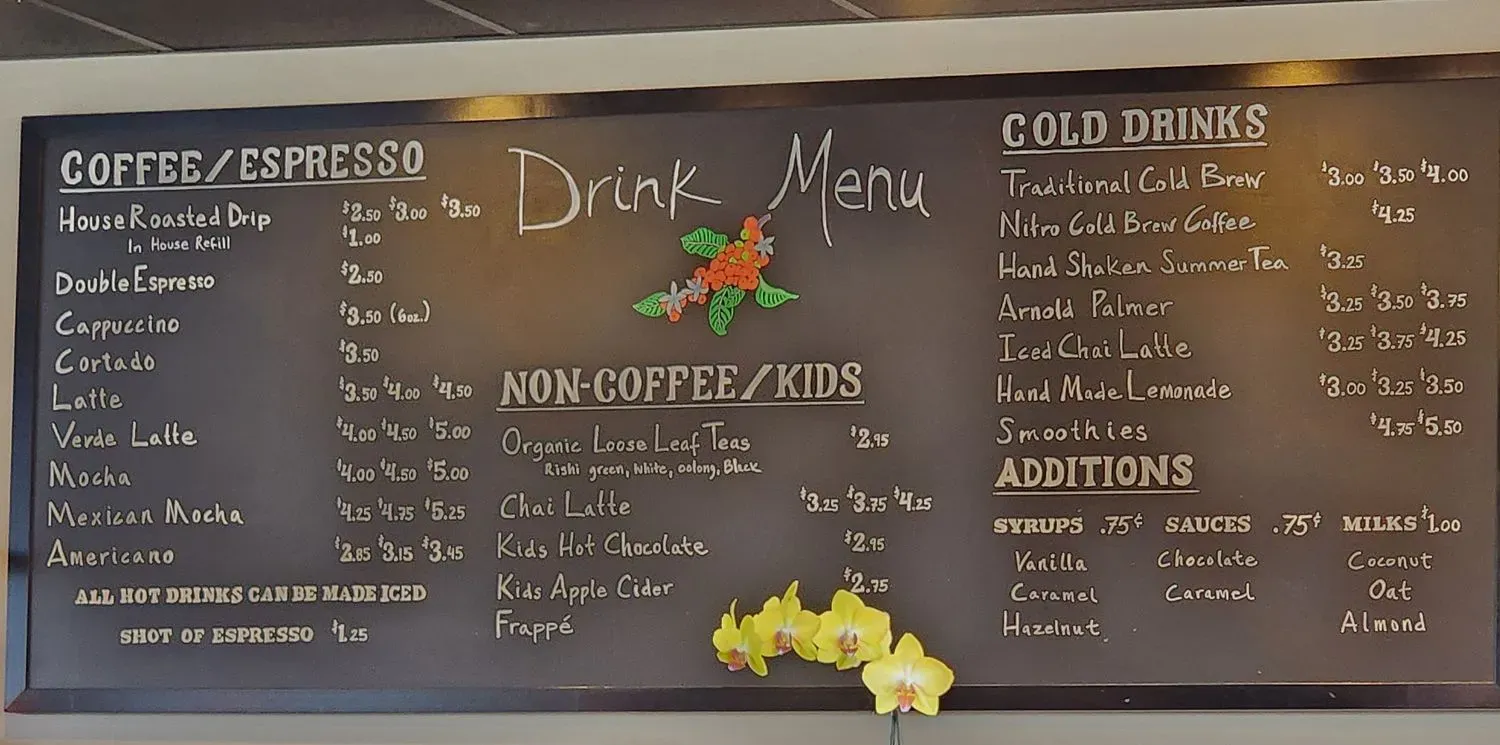 Drink Menu
COFFEE/ESPRESSO
House Roasted Drip $2.50 $3.00 $3.50
In House Refill $1.00
Double Espresso $2.50
Cappuccino $3.50 (6oz.)
Cortado $3.50
Latte $3.50 $4.00 $4.50
Verde Latte $4.00 $4.50 $5.00
Mocha $4.00 $4.50 $5.00
Mexican Mocha $4.25 $4.75 $5.25
Americano $2.85 $3.15 $3.45
ALL HOT DRINKS CAN BE MADE ICED
SHOT OF ESPRESSO $1.25
NON-COFFEE/KIDS
Organic Loose Leaf Teas $2.95
Rishi green, white, oolong, Black
Chai Latte $3.25 $3.75 $4.25
Kids Hot Chocolate $2.95
Kids Apple Cider $2.75
Frappé
COLD DRINKS
Traditional Cold Brew $3.00 $3.50 $4.00
Nitro Cold Brew Coffee $4.25
Hand Shaken Summer Tea $3.25
Arnold Palmer $3.25 $3.50 $3.75
Iced Chai Latte $3.25 $3.75 $4.25
Hand Made Lemonade $3.00 $3.25 $3.50
Smoothies $4.75 $5.50
ADDITIONS
SYRUPS .75¢ SAUCES .75¢ MILKS $1.00
Vanilla Chocolate Coconut
Caramel Caramel Oat
Hazelnut Almond